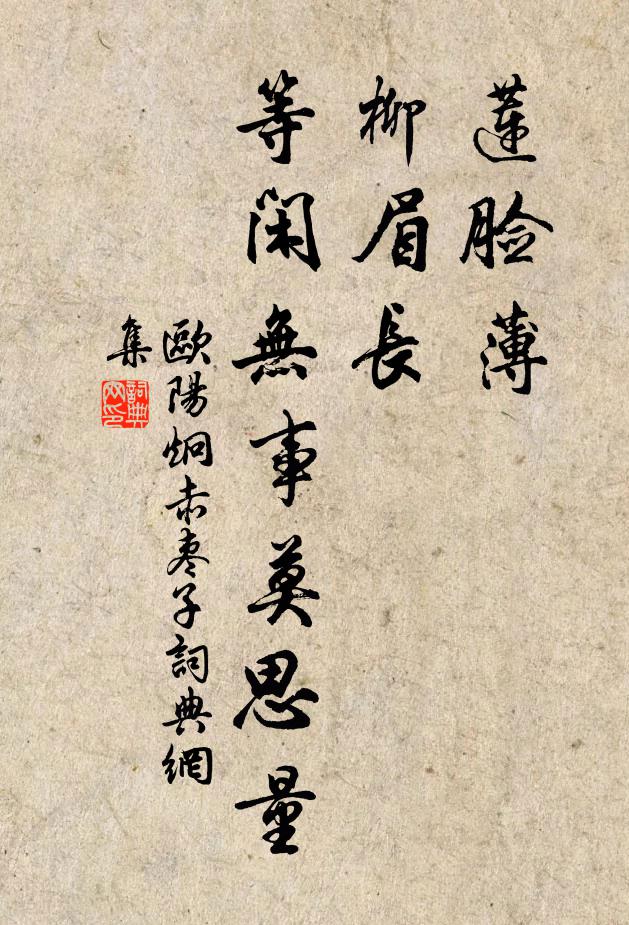 蓮臉薄
柳眉長
等閑無事莫思量
歐陽炯赤棗子詞典網
集
詞典網印